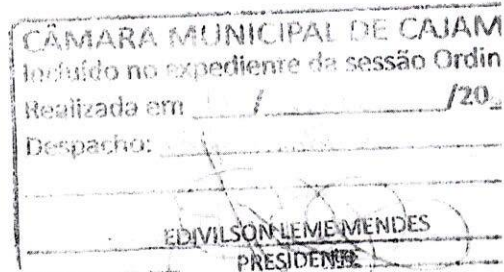 CÂMARA MUNICIPAL DE CAJAM
Incluído no expedienre da sessão Ordin
Realizada em / /20_
Despacho:
EDIVILSON LEME MENDES
PRESIDENTE